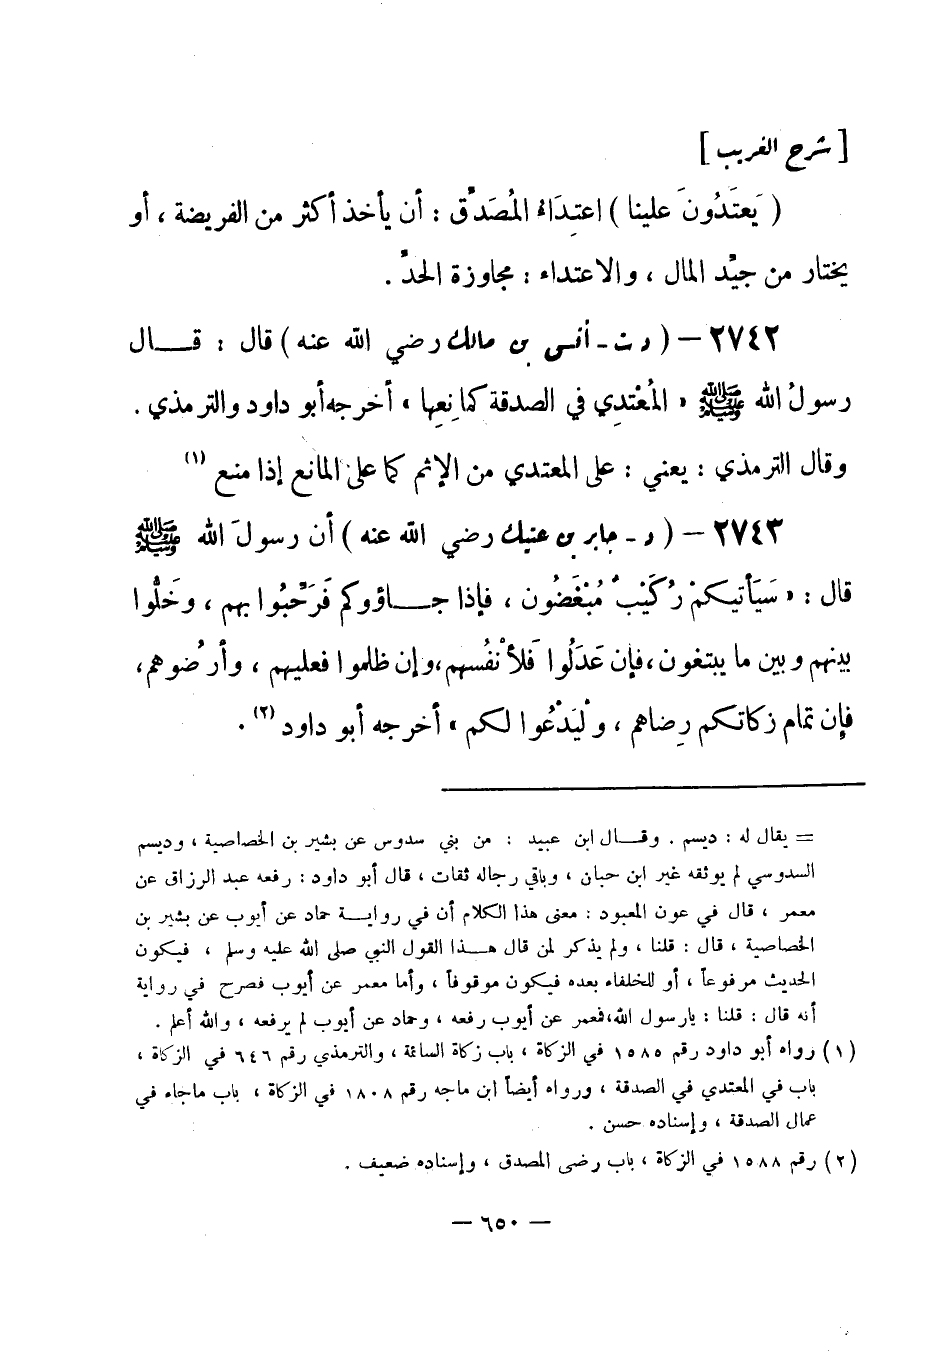 [ شرح الغريب ]
( يَعتَدُونَ علينا ) اعتِدَاءُ المُصَدِّق : أن يأخذ أكثر من الفريضة ، أو
يختار من جيِّد المال ، والاعتداء : مجاوزة الحدِّ .
٢٧٤٢ – ( د ت ـ أنس بن مالك رضي الله عنه ) قال : قــال
رسولُ الله ﷺ « المُعْتَدِي في الصدقة كمانِعها » أخرجه أبو داود والترمذي .
وقال الترمذي : يعني : على المعتدي من الإثم كما على المانع إذا منع (١)
٢٧٤٣ – ( د ـ جابر بن عتيك رضي الله عنه ) أن رسولَ الله ﷺ
قال : « سَيَأتيكمْ رُكَيْبٌ مُبْغَضُون ، فإذا جــاؤوكم فَرَحِّبُوا بهم ، وخَلُّوا
بينهم وبين ما يبتغون ،فإن عَدَلُوا فَلأنْفُسهم،وإن ظلموا فعليهم ، وأرْضُوهم،
فإن تمام زكاتكم رِضاهم ، ولْيَدْعُوا لكم » أخرجه أبو داود (٢) .
= يقال له : ديسم . وقــال ابن عبيد : من بني سدوس عن بشير بن الخصاصية ، وديسم
السدوسي لم يوثقه غير ابن حبان ، وباقي رجاله ثقات ، قال أبو داود : رفعه عبد الرزاق عن
معمر ، قال في عون المعبود : معنى هذا الكلام أن في روايــة حماد عن أيوب عن بشير بن
الخصاصية ، قال : قلنا ، ولم يذكر لمن قال هــذا القول النبي صلى الله عليه وسلم ، فيكون
الحديث مرفوعاً ، أو للخلفاء بعده فيكون موقوفاً ، وأما معمر عن أيوب فصرح في رواية
أنه قال : قلنا : يارسول الله،فعمر عن أيوب رفعه ، وحماد عن أيوب لم يرفعه ، والله أعلم .
(١) رواه أبو داود رقم ١٥٨٥ في الزكاة ، باب زكاة السائمة ، والترمذي رقم ٦٤٦ في الزكاة ،
باب في المعتدي في الصدقة ، ورواه أيضاً ابن ماجه رقم ١٨٠٨ في الزكاة ، باب ماجاء في
عمال الصدقة ، وإسناده حسن .
(٢) رقم ١٥٨٨ في الزكاة ، باب رضى المصدق ، وإسناده ضعيف .
— ٦٥٠ —